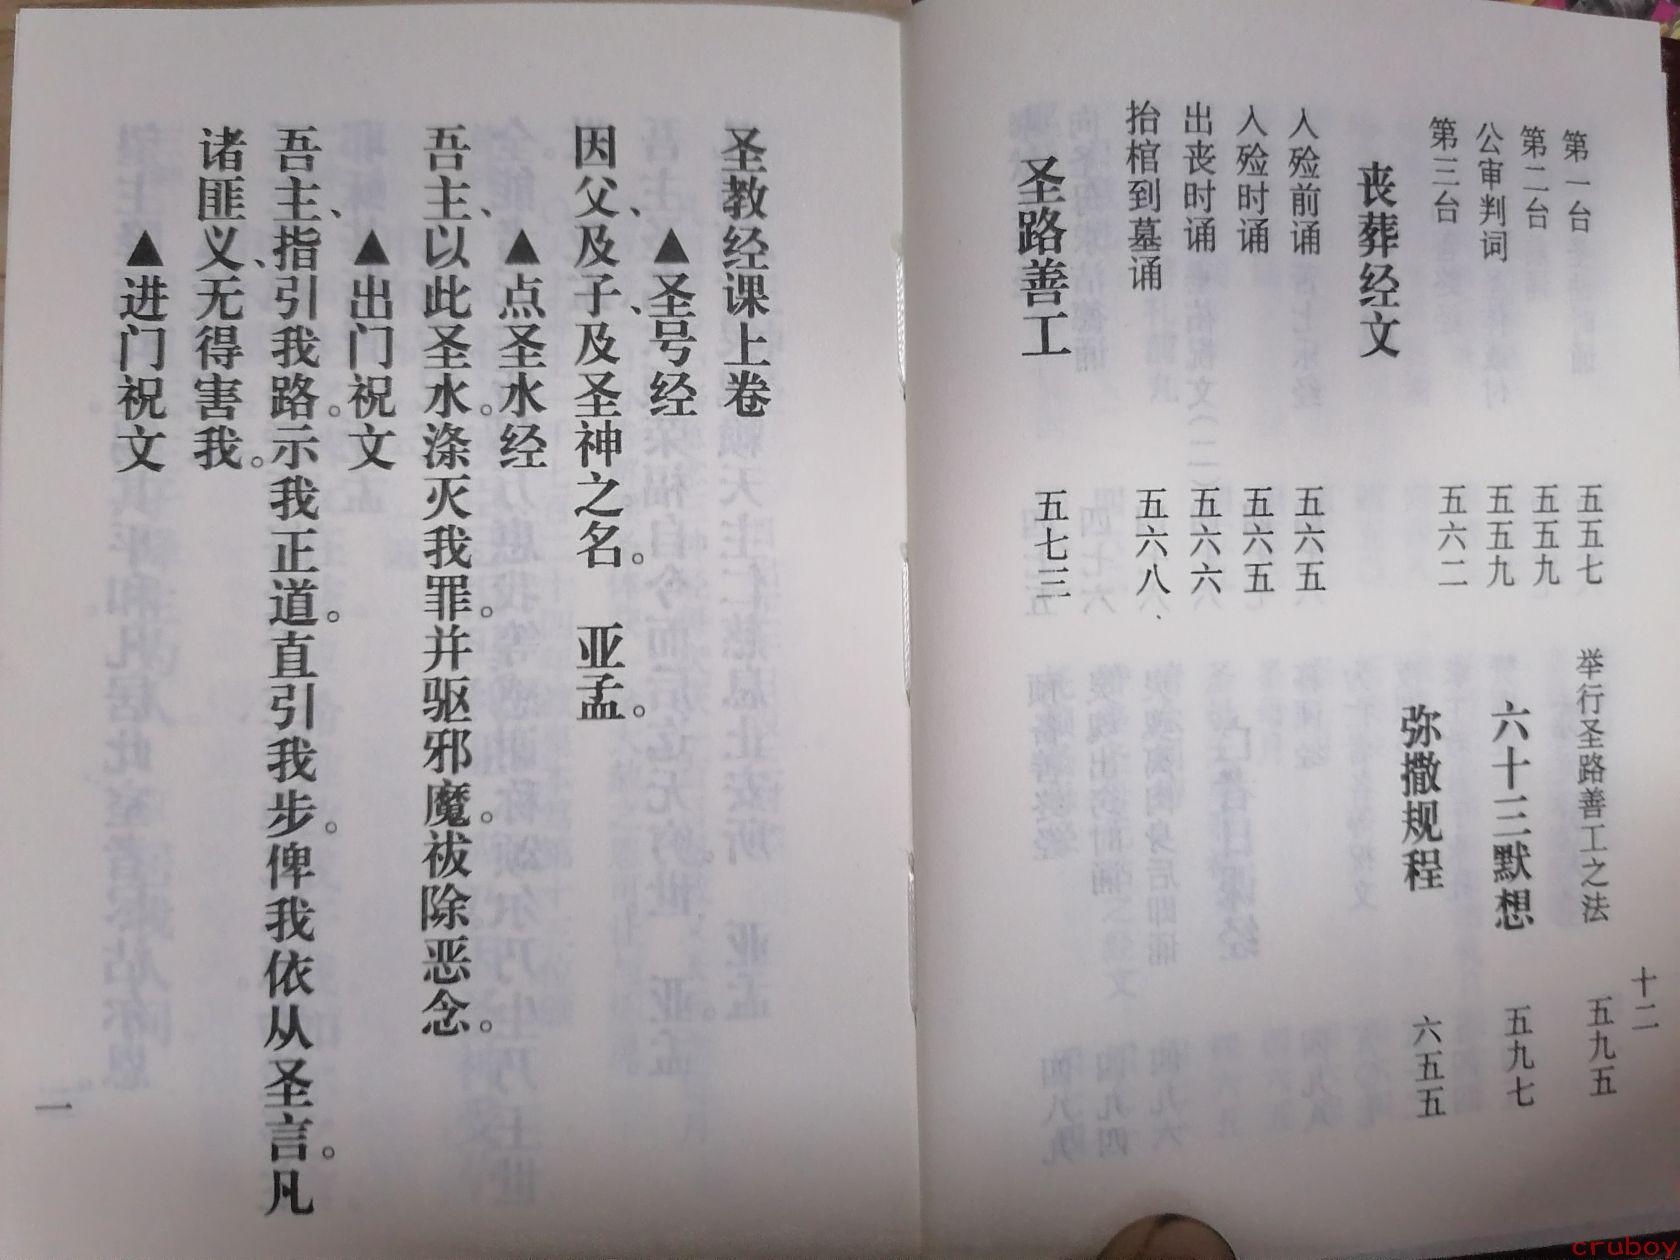 十二
第一台 五五七
第二台 五五九
公审判词 五五九
第三台 五六二
丧葬经文
入殓前诵 五六五
入殓时诵 五六五
出丧时诵 五六六
抬棺到墓诵 五六八
圣路善工 五七三
举行圣路善工之法 五九五
六十三默想 五九七
弥撒规程 六五五
圣教经课上卷
▲圣号经
因父、及子、及圣神之名。 亚孟。
▲点圣水经
吾主、以此圣水。涤灭我罪。并驱邪魔。祓除恶念。
▲出门祝文
吾主、指引我路。示我正道。直引我步。俾我依从圣言。凡
诸匪义、无得害我。
▲进门祝文
一
cruboy